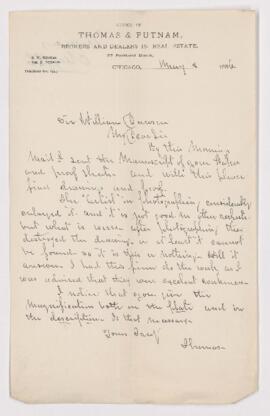 OFFICE OF
THOMAS & PUTNAM,
BROKERS AND DEALERS IN REAL ESTATE,
CHICAGO, May 1886
Sir William Dawson
My Dear Sir
By this Morning
Mail I sent the Manuscript of your Paper
and proof sheets and with this please
find drawing and proof.
The Artist in photographing, considerably
enlarged it and it is just good in other respects
but what is worse after photographing they
destroyed the drawing, or at least it cannot
be found so it is this or nothing. Still it
answers I had this firm do the work, as I
was advised that they were excellent workmen.
I notice that you give the
Magnification both on the plate and in
the description Is that necessary
Yours Truly
Thomas